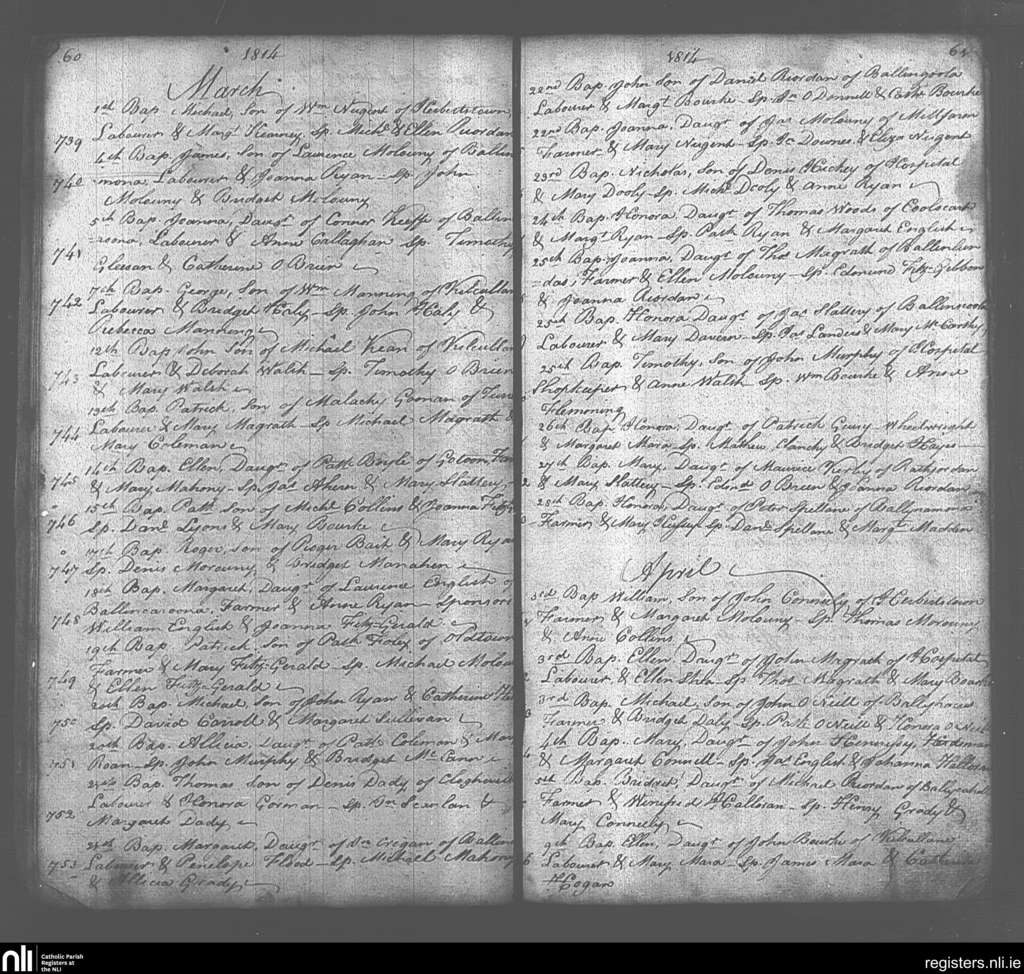 60
1814
March
1st Bap. Michael, Son of Wm Nugent of Herbertstown,
739 Labourer & Margt Kearney, Sp. Michl & Ellen Riordan
4th Bap. James, Son of Laurence Molouny of Ballin
740 =mona, Labourer & Joanna Ryan - Sp. John
Molouny & Bridget Molouny
5th Bap. Joanna, Daugt of Connor Keeffe of Ballin
741 =roona, Labourer & Anne Callaghan Sp. Timothy
Gleesan & Catherine O Brien
7th Bap. George, Son of Wm Manning of Kilcullan
742 Labourer & Bridget Haly - Sp. John Haly &
Rebecca Manning
12th Bap. John Son of Michael Kean of Kilcullan
743 Labourer & Deborah Walsh - Sp. Timothy O Brien
& Mary Walsh
13th Bap. Patrick, Son of Malachy
744 Labourer & Mary Magrath - Sp. Michael Magrath &
Mary Coleman
14th Bap. Ellen, Daugt of Patk Boyle of
745 & Mary Mahony - Sp. Jas Ahern & Mary Slattery
15th Bap. Patk Son of Michl Collins & Joanna
746 Sp. Danl Lyons & Mary Bourke
17th Bap. Roger, Son of Roger Bait & Mary Ryan
747 Sp. Denis Morouny, & Bridget Manahen
18th Bap. Margaret, Daugt of Laurence English of
748 Ballincaroona, Farmer & Anne Ryan - Sponsors
William English & Joanna Fitz-Gerald
19th Bap. Patrick, Son of Patk of Oldtown
Farmer & Mary Fitz-Gerald Sp. Michael
749 & Ellen Fitz-Gerald
20th Bap. Michael, Son of John Ryan & Catherine
750 Sp. David Carroll & Margaret Sullivan
20th Bap. Allicia, Daugt of Patk Coleman &
751 Roan - Sp. John Murphy & Bridget
Bap. Thomas Son of Denis Dady of
752 Labourer & Honora Gorman - Sp. Scanlan &
Margaret Dady
Bap. Margaret, Daugt of Cregan of Ballin
753 Labourer & Penelope Flood - Sp. Michael Mahony
& Allicia Grady
1814
61
22nd Bap. John Son of Daniel Riordan of Ballingoola
Labourer & Margt Bourke - Sp. O Donnell & Cathe Bourke
22nd Bap. Joanna, Daugt of Jas Molouny of Millfaren
Farmer & Mary Nugent - Sp. Downes & Eliza Nugent
23rd Bap. Nicholas, Son of Denis Hickey of Hospital
& Mary Dooly - Sp. Michl Dooly & Anne Ryan
24th Bap. Honora, Daugt of Thomas Woods of
& Margt Ryan - Sp. Patk Ryan & Margaret English
25th Bap. Joanna, Daugt of Thos Magrath of Ballenlien
=das, Farmer & Ellen Molouny - Sp. Edmund Fitz-Gibbon
& Joanna Riordan
25th Bap. Honora Daugt of Jas Slattery of
Labourer & Mary Davern - Sp. Jas Landers & Mary Mc Carthy
25th Bap. Timothy, Son of John Murphy of Hospital
Shopkeeper & Anne Walsh Sp. Wm Bourke & Anne
Flemming
26th Bap. Honora, Daugt of Patrick Wheelwright
& Margaret Mara - Sp. Mathew Clanchy & Bridget Hayes
27th Bap. Mary, Daugt of Maurice Kerby of Rathjordan
& Mary Slattery - Sp. Edmd O Brien & Joanna Riordan
28th Bap. Honora, Daugt of Peter Spellane of Ballynamona
Farmer & Mary Sp. Danl Spellane & Margt Madden
April
3rd Bap. William, Son of John Connelly of Herbertstown
Farmer & Margaret Molouny - Sp. Thomas Morouny
& Anne Collins
3rd Bap. Ellen, Daugt of John Magrath of Hospital
Labourer, & Ellen Shea - Sp. Thos Magrath & Mary Bourke
3rd Bap. Michael, Son of John O Neill of
Farmer & Bridget Daly - Sp. Patk O Neill & Honora O Neill
4th Bap. Mary, Daugt of John Hennessy, Herdsman
& Margaret Connell - Sp. Jas English & Johanna
5th Bap. Bridget, Daugt of Michael Riordan of
Farmer & Winefred Halloran - Sp. Henry Grady &
Mary Connelly
9th Bap. Ellen, Daugt of John Bourke of Kilcullane
Labourer & Mary Mara - Sp. James Mara & Catherine
Hogan
nli
Catholic Parish
Registers at
the NLI
registers.nli.ie